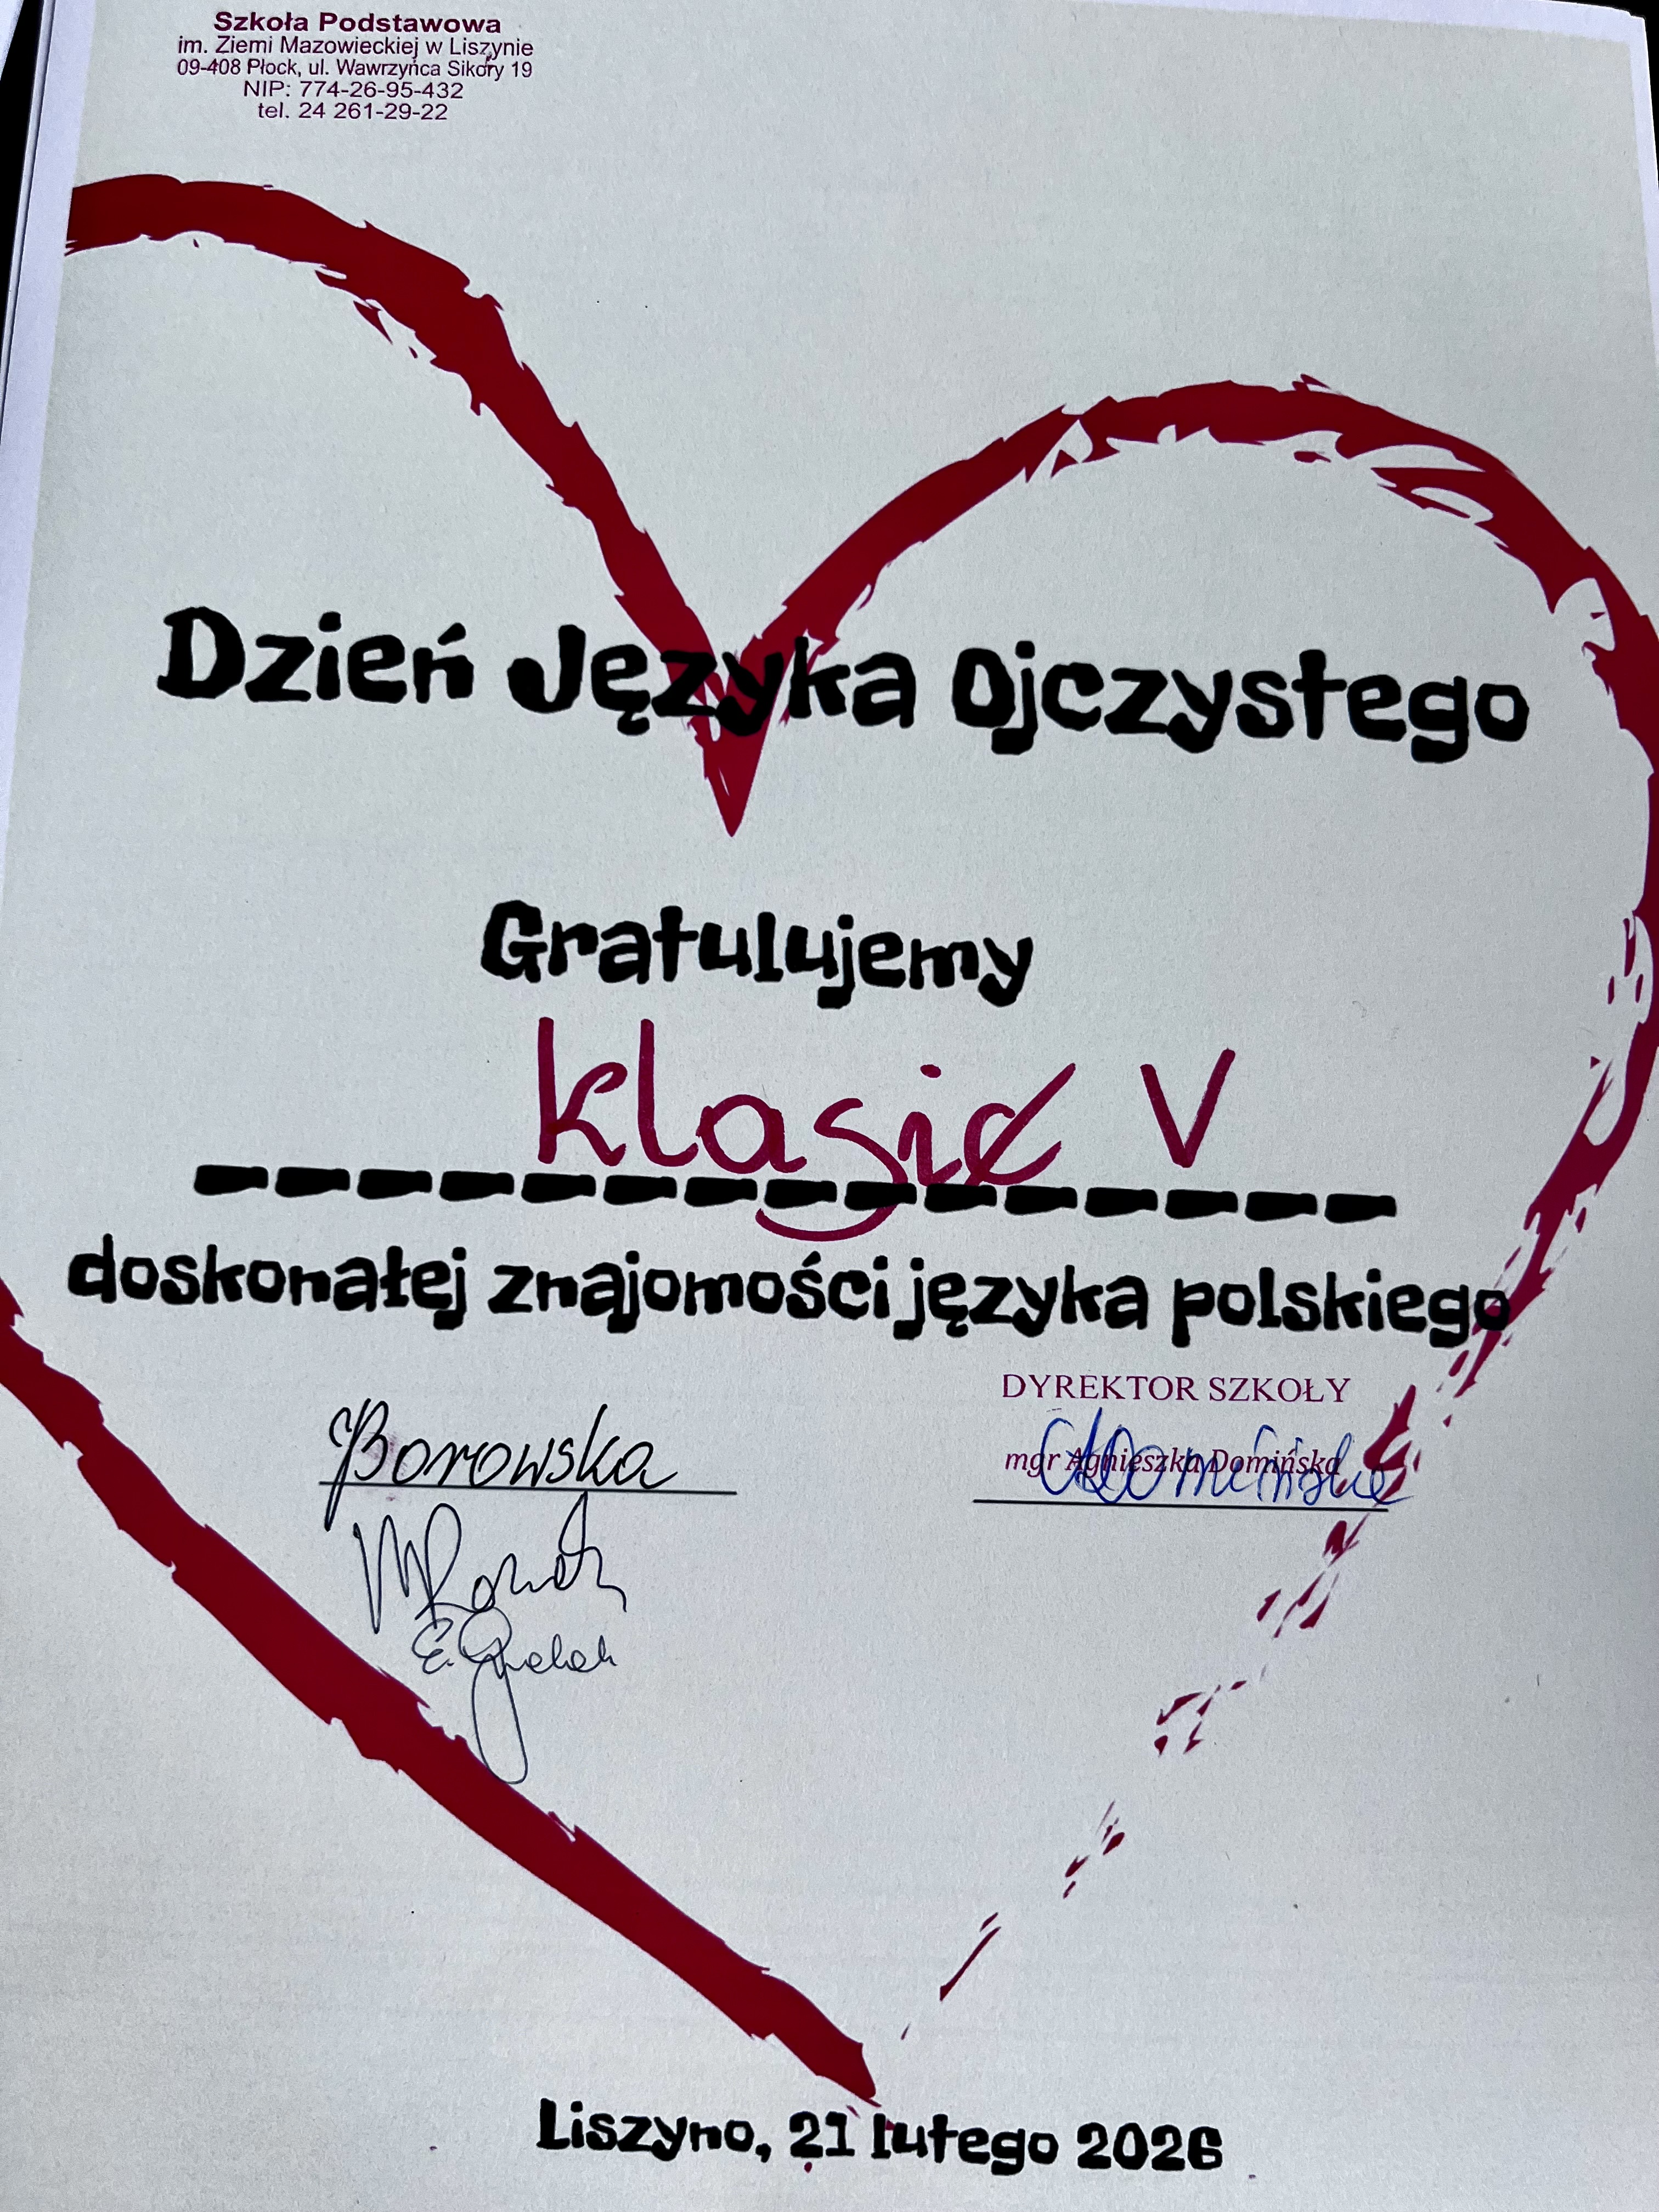 Szkoła Podstawowa
im. Ziemi Mazowieckiej w Liszynie
09-408 Płock, ul. Wawrzyńca Sikory 19
NIP: 774-26-95-432
tel. 24 261-29-22
Dzień Języka Ojczystego
Gratulujemy
klasie V
doskonałej znajomości języka polskiego
DYREKTOR SZKOŁY
mgr Agnieszka Domińska
Borowska
Liszyno, 21 lutego 2026